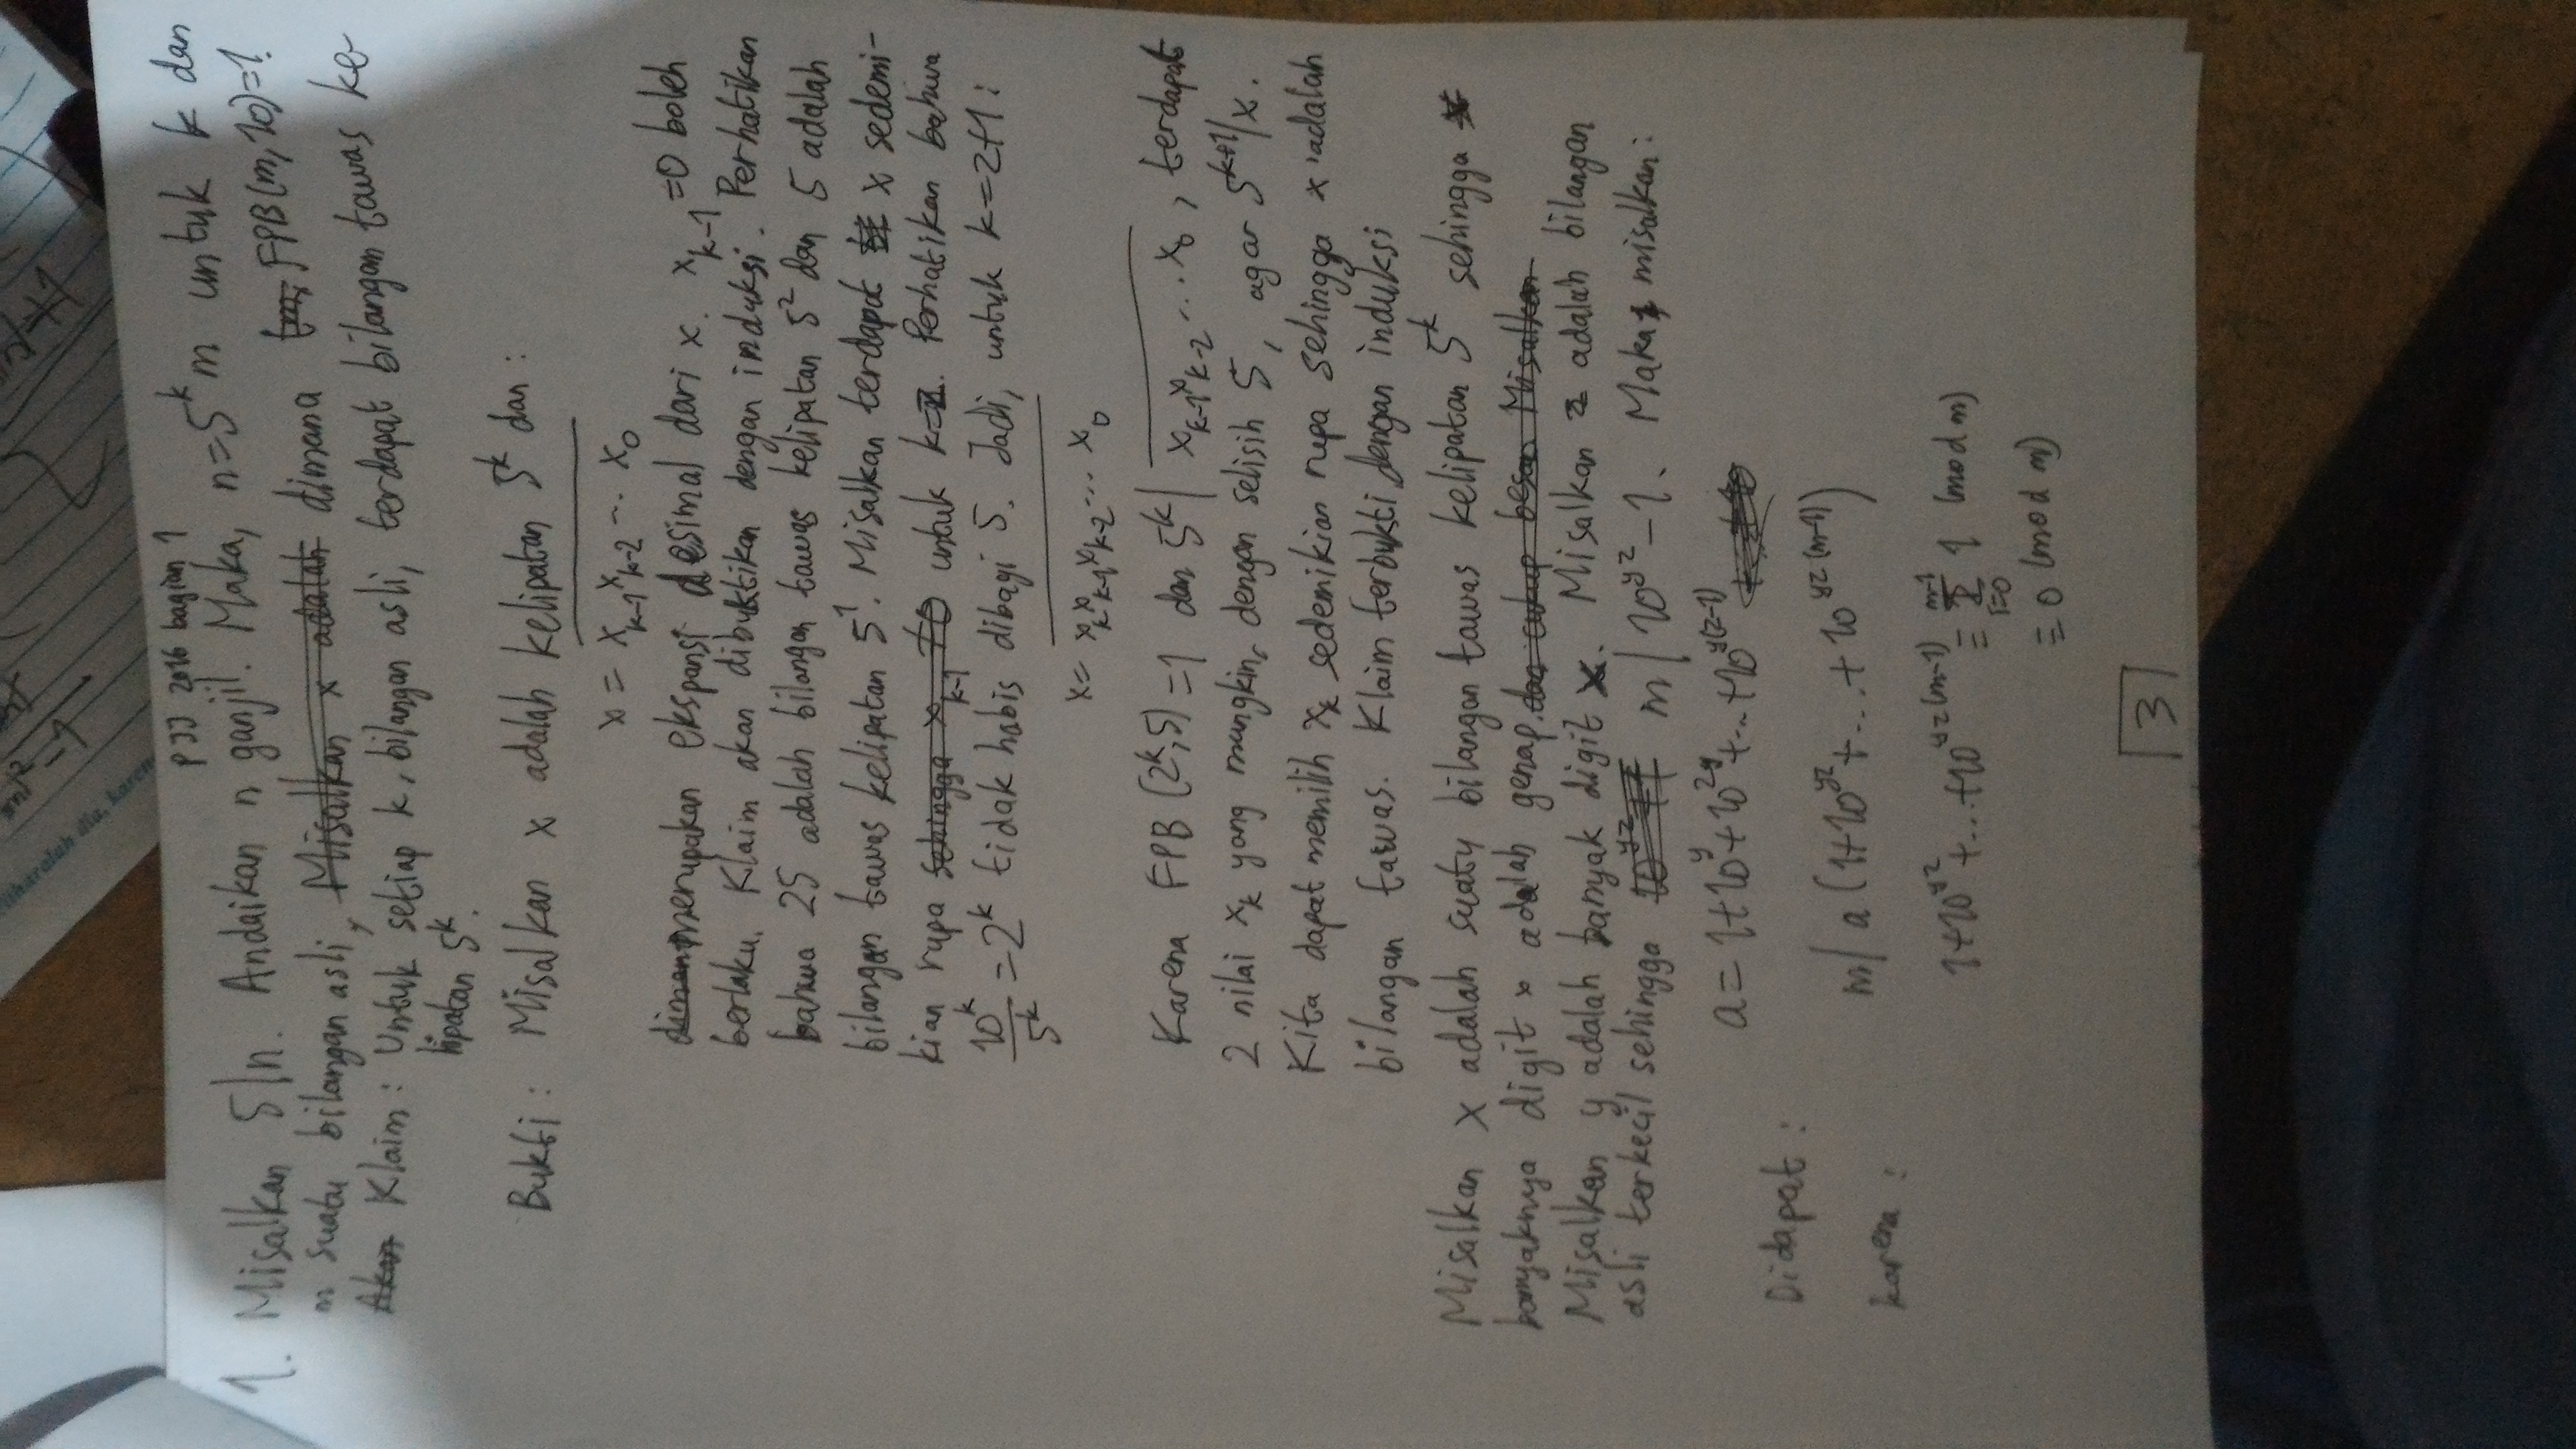 PJJ 2016 bagian 1
1. Misalkan 5|n. Andaikan n ganjil. Maka, n=5^k m untuk k dan
m suatu bilangan asli, Misalkan x adalah dimana FPB(m,10)=1.
Akan Klaim: Untuk setiap k, bilangan asli, terdapat bilangan tawas ke-
lipatan 5^k.
Bukti: Misalkan x adalah kelipatan 5^k dan:
x = x_{k-1}x_{k-2}... x_0
diman merupakan ekspansi desimal dari x. x_{k-1}=0 boleh
berlaku. Klaim akan dibuktikan dengan induksi. Perhatikan
bahwa 25 adalah bilangan tawas kelipatan 5^2 dan 5 adalah
bilangan tawas kelipatan 5^1. Misalkan terdapat x sedemi-
kian rupa sehingga x_{k-1} ≠0 untuk k=z. Perhatikan bahwa
10^k/5^k = 2^k tidak habis dibagi 5. Jadi, untuk k=z+1:
x= x_k x_{k-1}x_{k-2}... x_0
Karena FPB (2^k,5)=1 dan 5^k| x_{k-1}x_{k-2}...x_0, terdapat
2 nilai x_k yang mungkin, dengan selisih 5, agar 5^{k+1}|x.
Kita dapat memilih x_k sedemikian rupa sehingga x adalah
bilangan tawas. Klaim terbukti dengan induksi
Misalkan x adalah suatu bilangan tawas kelipatan 5^k sehingga
banyaknya digit x adalah genap. dan cukup besar Misalkan
Misalkan y adalah banyak digit x. Misalkan z adalah bilangan
asli terkecil sehingga 10^{yz}+1 m | 10^{yz}-1. Maka, misalkan:
a= 1+10^y+10^{2y}+...+10^{y(z-1)}
Didapat:
m| a (1+10^{yz}+...+10^{yz(m-1)})
karena:
1+10^{yz}+...+10^{yz(m-1)} ≡ Σ_{i=0}^{m-1} 1 (mod m)
≡ 0 (mod m)
3